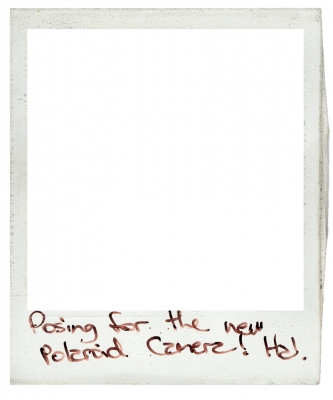 Posing for the new
Polaroid Camera! Ha!.